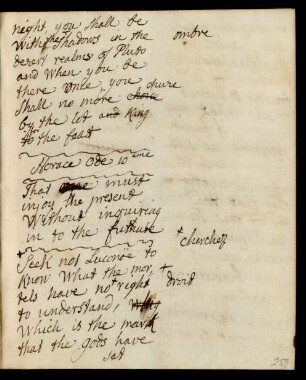 night you shall be
with the shadows in the ombre
desert realms of Pluto
and when you be
there once you
shall no more choice
by the lot and King
to the feast
Horace Ode 10 me
That must
injoy the present
Without inquiring
in to the future
+ cherchez
+ Seek not Luconoe to
know What the mor +
tels have not right droit
to understand,
Which is the mark
that the gods have
set
259